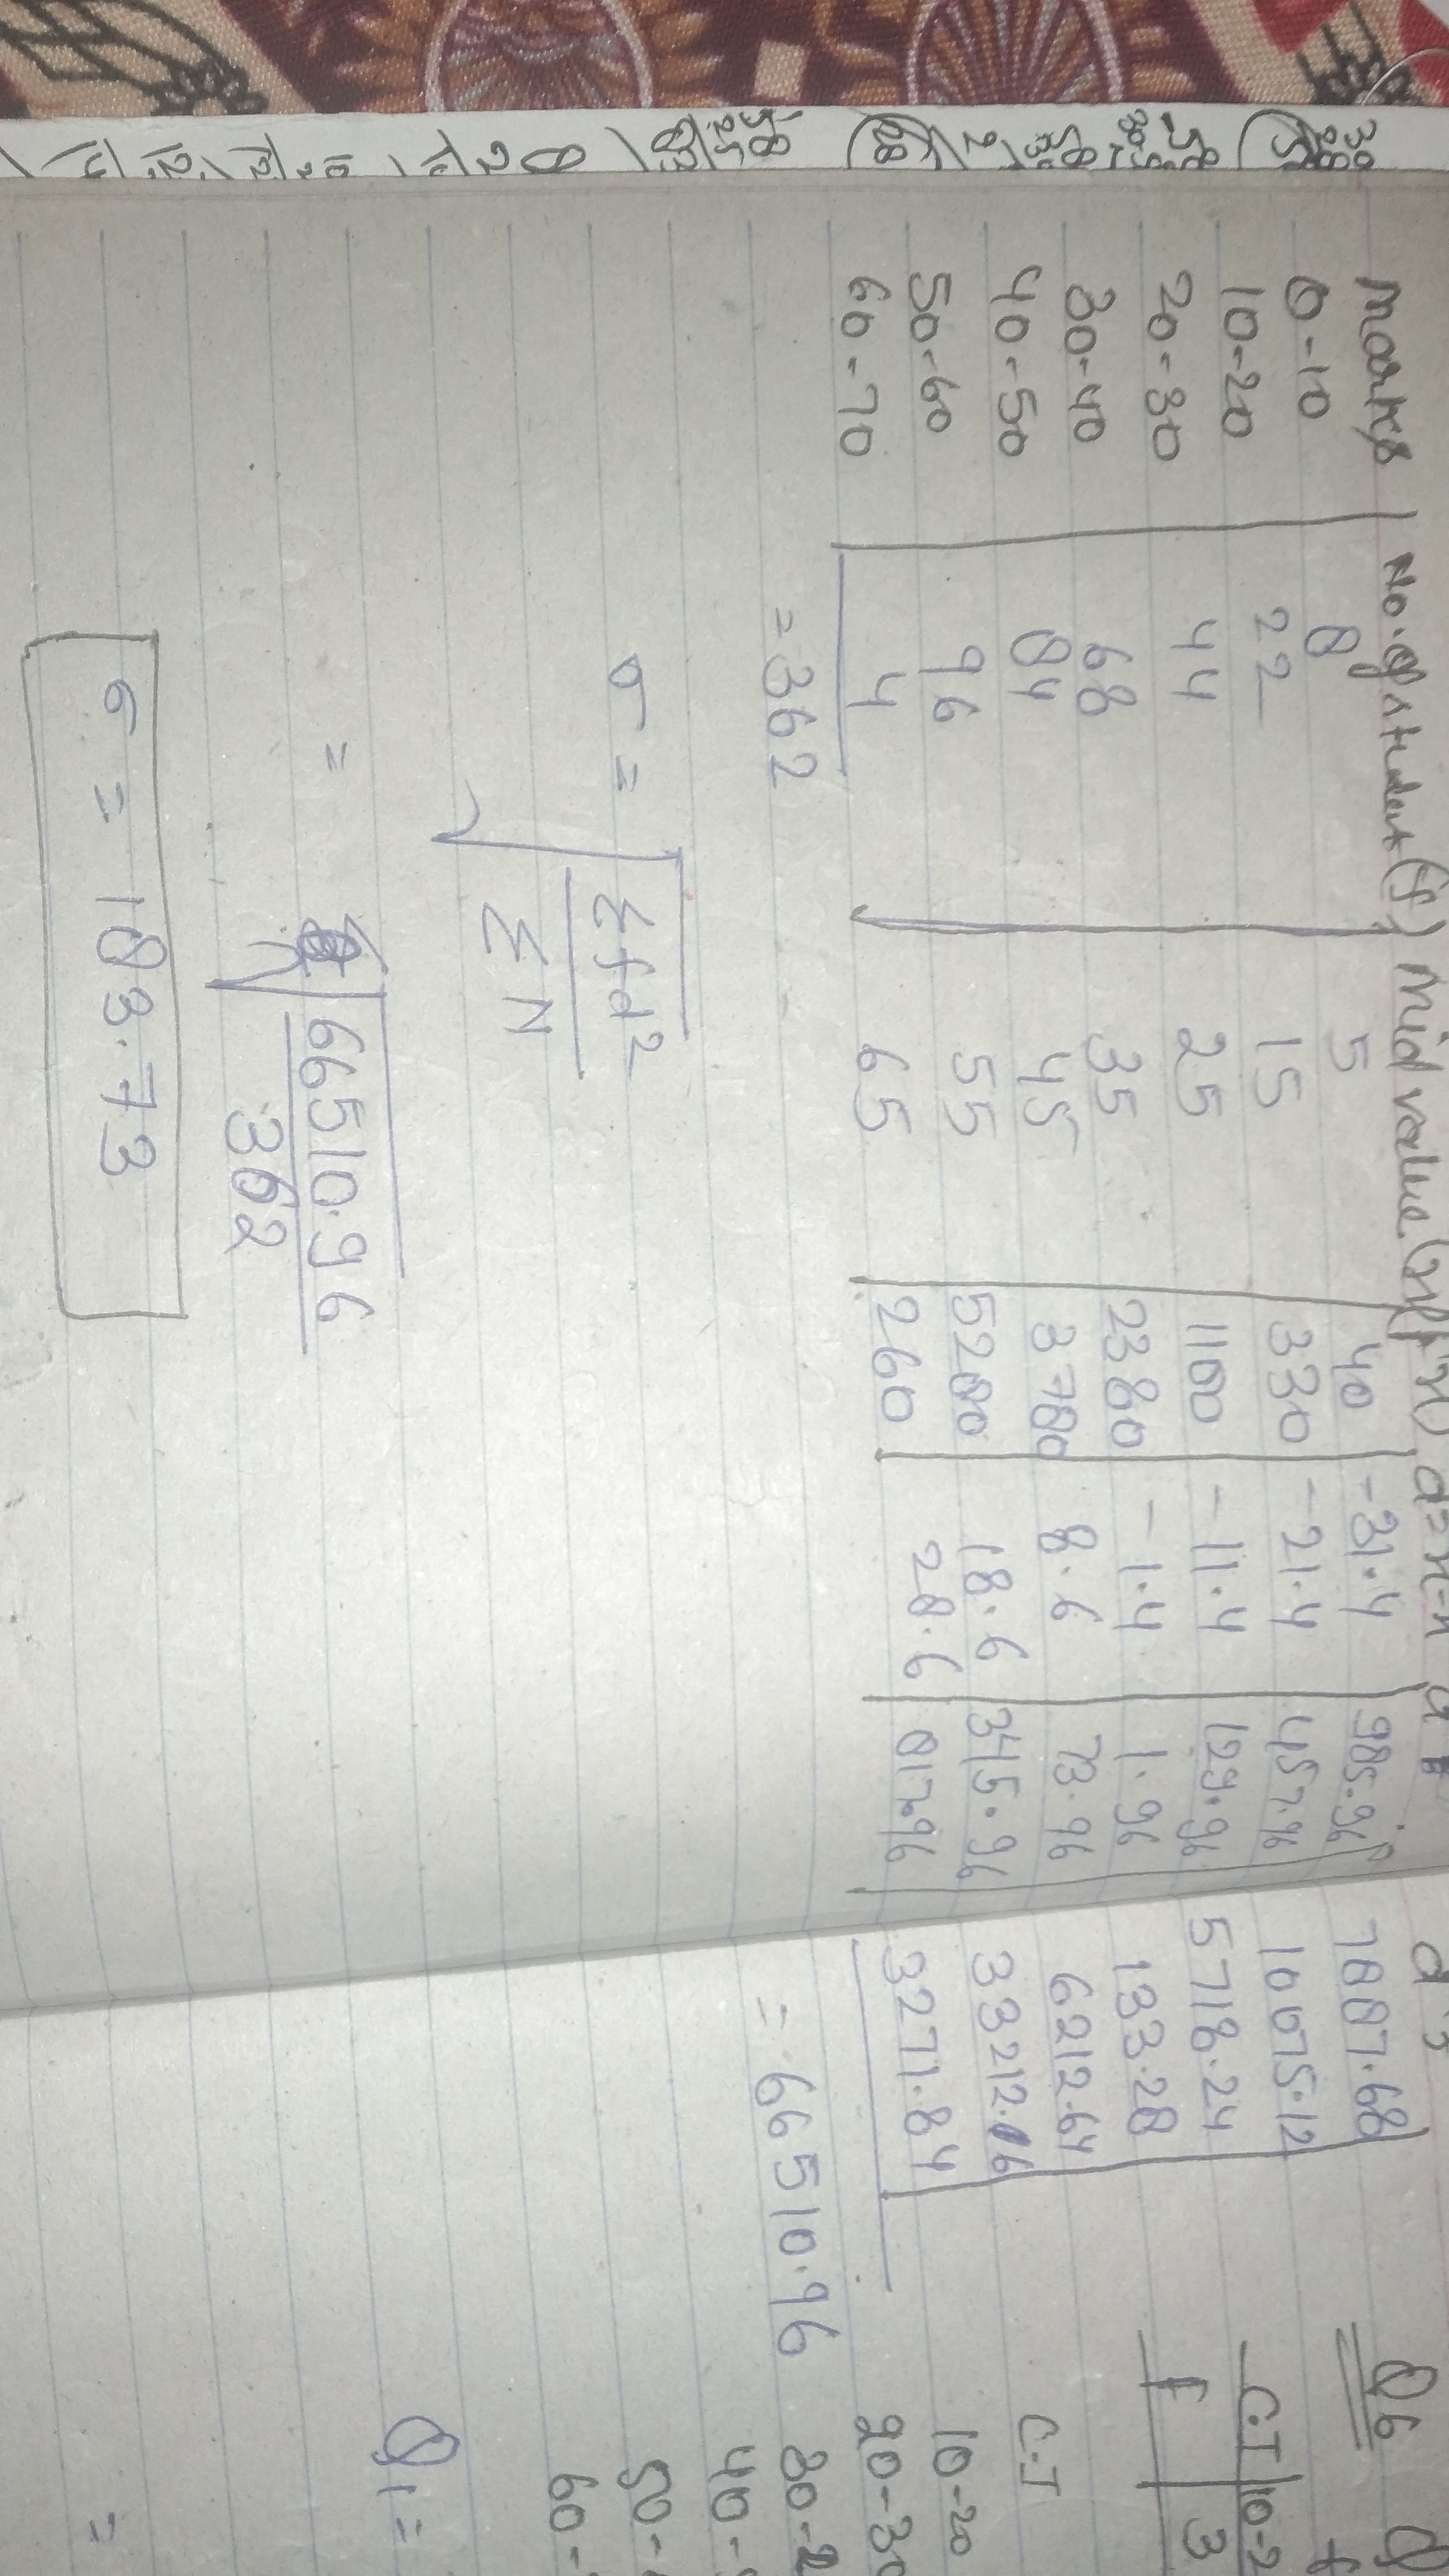 Marks No. of student (f) Mid value
0-10 8 5 40 -31.4 985.96 7887.68
10-20 22 15 330 -21.4 457.96 10075.12
20-30 44 25 1100 -11.4 129.96 5718.24
30-40 68 35 2380 -1.4 1.96 133.28
40-50 84 45 3780 8.6 73.96 6212.64
50-60 96 55 5280 18.6 345.96 33212.16
60-70 4 65 260 28.6 817.96 3271.84
=362 = 66510.96
σ = √Σfd²
ΣN
= √66510.96
362
σ = 183.73
Q6
C.I 10-2
f 3
C.I
10-20
20-30
30-
40-
50-
60-
Q1 =
=